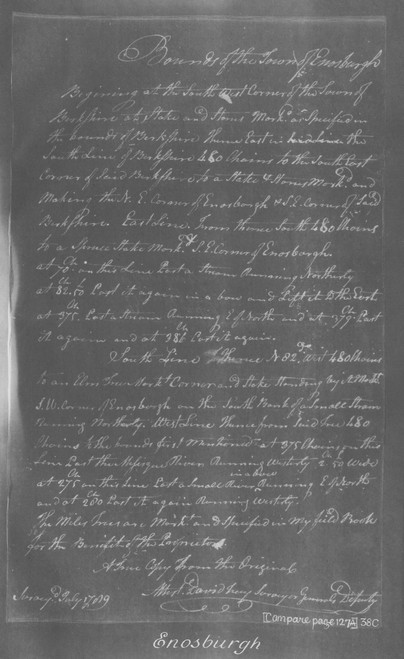 Bounds of the Town of Enosburgh
Begining at the South West Corner of the Town of
Berkshire at State and Stones Mark.d as Specified in
the bounds of Berkshire Thence East in the
South Line of Berkshire 480 Chains to the South East
Corner of said Berkshire to a Stake & Stones Mark.d and
Making the N. E. Corner of Enosburgh & S. E. Corner of said
Berkshire. East Line. From thence South 480 Chains
to a Spruce Stake Mark.d S. E. Corner of Enosburgh.
at 70 on this Line East a Stream Running Northerly
at 82.50 East it again in a bow and Left it to the East
at 375. East a Stream Running E of North and at 379. East
it again and at 386 East it again.
South Line Thence N 82 West 480 Chains
to an Elm Tree Mark.t Corner and Stake Standing by it Mark.t
S. W. Corner of Enosburgh on the South Bank of a Small Stream
Running Northerly. West Line Thence from said Tree 480
Chains to the bounds first Mentioned at 375 Chains on this
Line East the River Running Westerly 2.50 Wide
at 275 on this Line East a Small River Running E of North
in a bow
and at 280 East it again Running Westerly
The Miles Trees are Mark.d and Specified in My field Book
for the Benefit of the Proprietors
A True Copy from the Original
July 17
Attest. David Surveyor General's Deputy
[Compare page 127A] 38C
Enosburgh